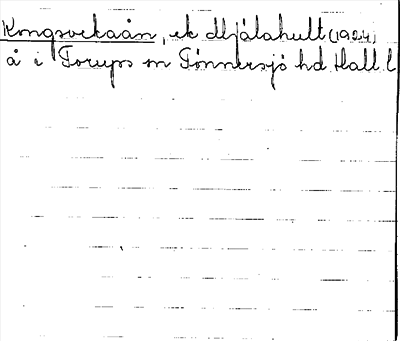 Kongsvekaån, ek Mjälahult (1924)
å i Torups sn Tönnersjö hd Hall. l